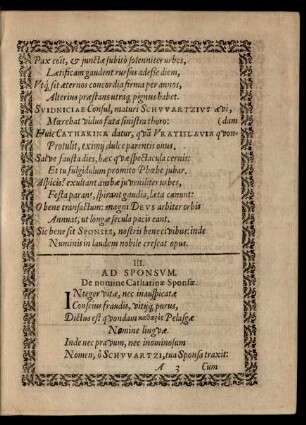 Pax coit, & junctæ subitò solenniter urbes,
Lætificam gaudent rursus adesse diem,
Vtq́; sit æternos concordia firma per annos,
Alterius præstans utraq; pignus habet.
SVIDNICIAE Consul, maturi SCHVVARTZIVS ævi,
Mærebat viduo fata sinistra thoro: (dam
Huic CATHARINA datur, quã VRATISLAVIA quon-
Protulit, eximij dulce parentis onus.
Salve fausta dies, hæc quæ spectacula cernis:
Et tu fulgidulum promito Phœbe jubar.
Aspicis? exultant ambæ juveniliter urbes,
Festa parant, spirant gaudia, læta canunt:
O bene transactum: magni DEVS arbiter orbis
Annuat, ut longæ secula pacis eant.
Sic bene sit SPONSIS, nostris bene civibus: inde
Numinis in laudem nobile crescat opus.
III.
AD SPONSVM.
De nomine Catharinæ Sponsæ.
INteger vitæ, nec inauspicatæ
Conscius fraudis, vitijq́; purus,
Dictus est quondam καθαρὸς Pelasgæ
Nomine linguæ.
Inde nec pravum, nec inominosum
Nomen, ô SCHVVARTZI, tua Sponsa traxit:
A 3 Cum